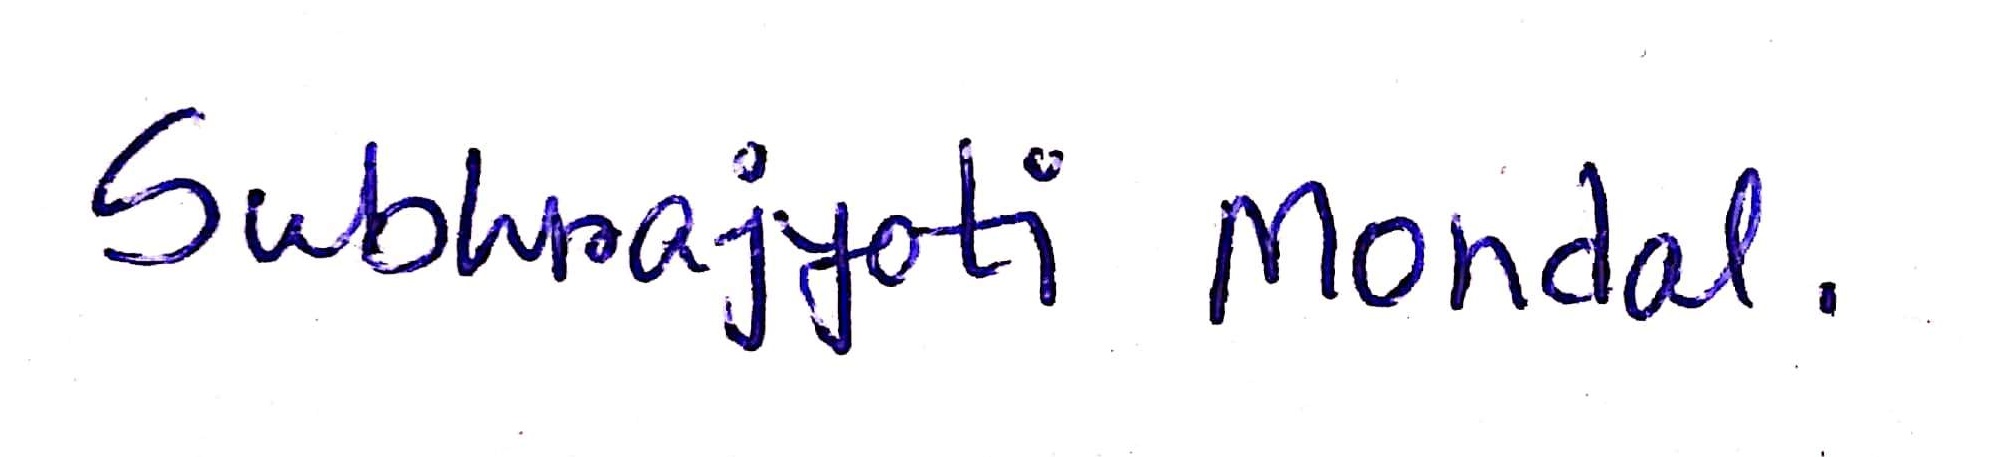 Subhrajyoti Mondal.